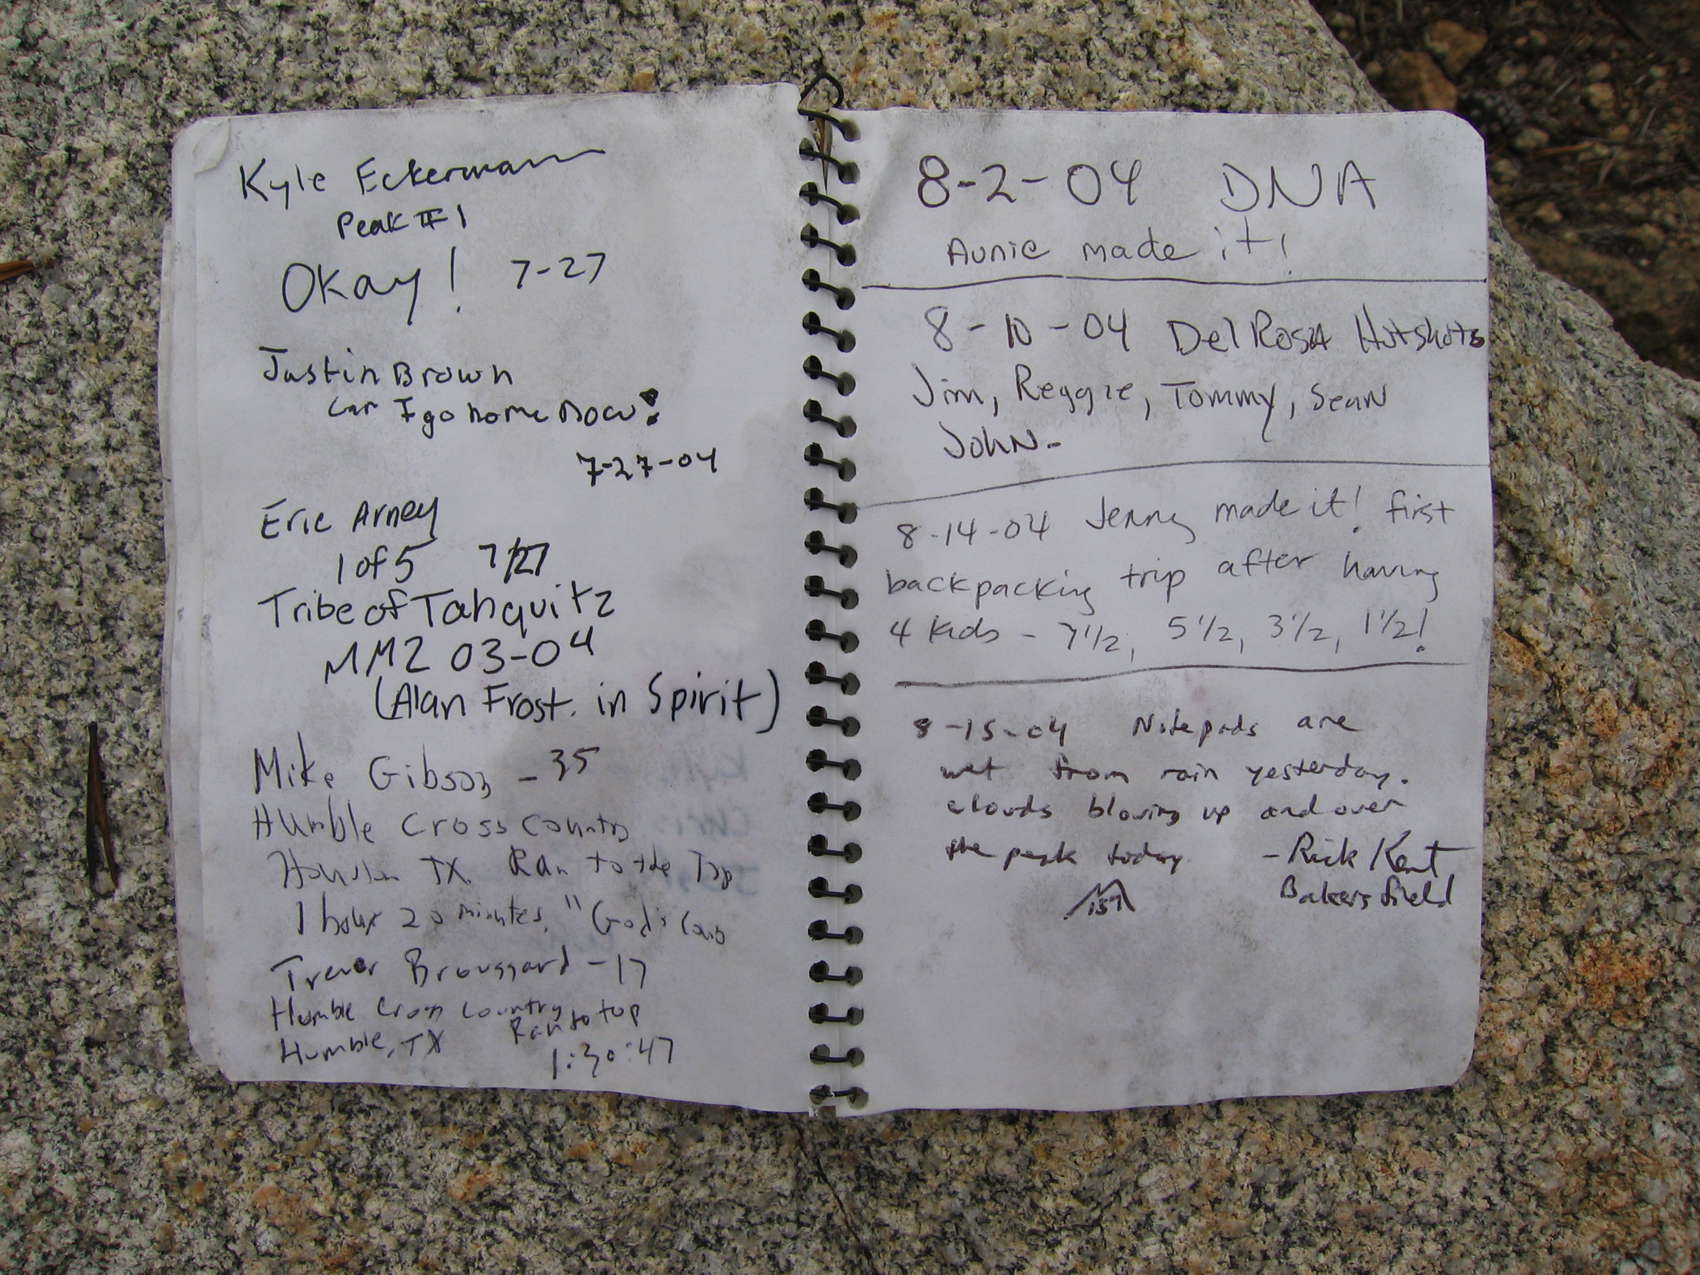 Kyle Eckermann
Peak #1
Okay! 7-27
Justin Brown
can I go home Now?
7-27-04
Eric Arney
1 of 5 7/27
Tribe of Tahquitz
MM2 03-04
(Alan Frost. in Spirit)
Mike Gibson - 35
Humble Cross Country
Houston TX. Ran to the Top
1 hour 20 minutes. "God's
Trevor Broussard - 17
Humble Cross Country
Ran to top
Humble, TX
1:30:47
8-2-04 DNA
Aunie made it!
8-10-04 Del Rosa Hotshots
Jim, Reggie, Tommy, Sean
John-
8-14-04 Jenny made it! first
backpacking trip after having
4 kids - 7 1/2, 5 1/2, 3 1/2, 1 1/2!
8-15-04 Notepads are
wet from rain yesterday.
clouds blowing up and over
the peak today. - Rick Kent
Bakersfield
157